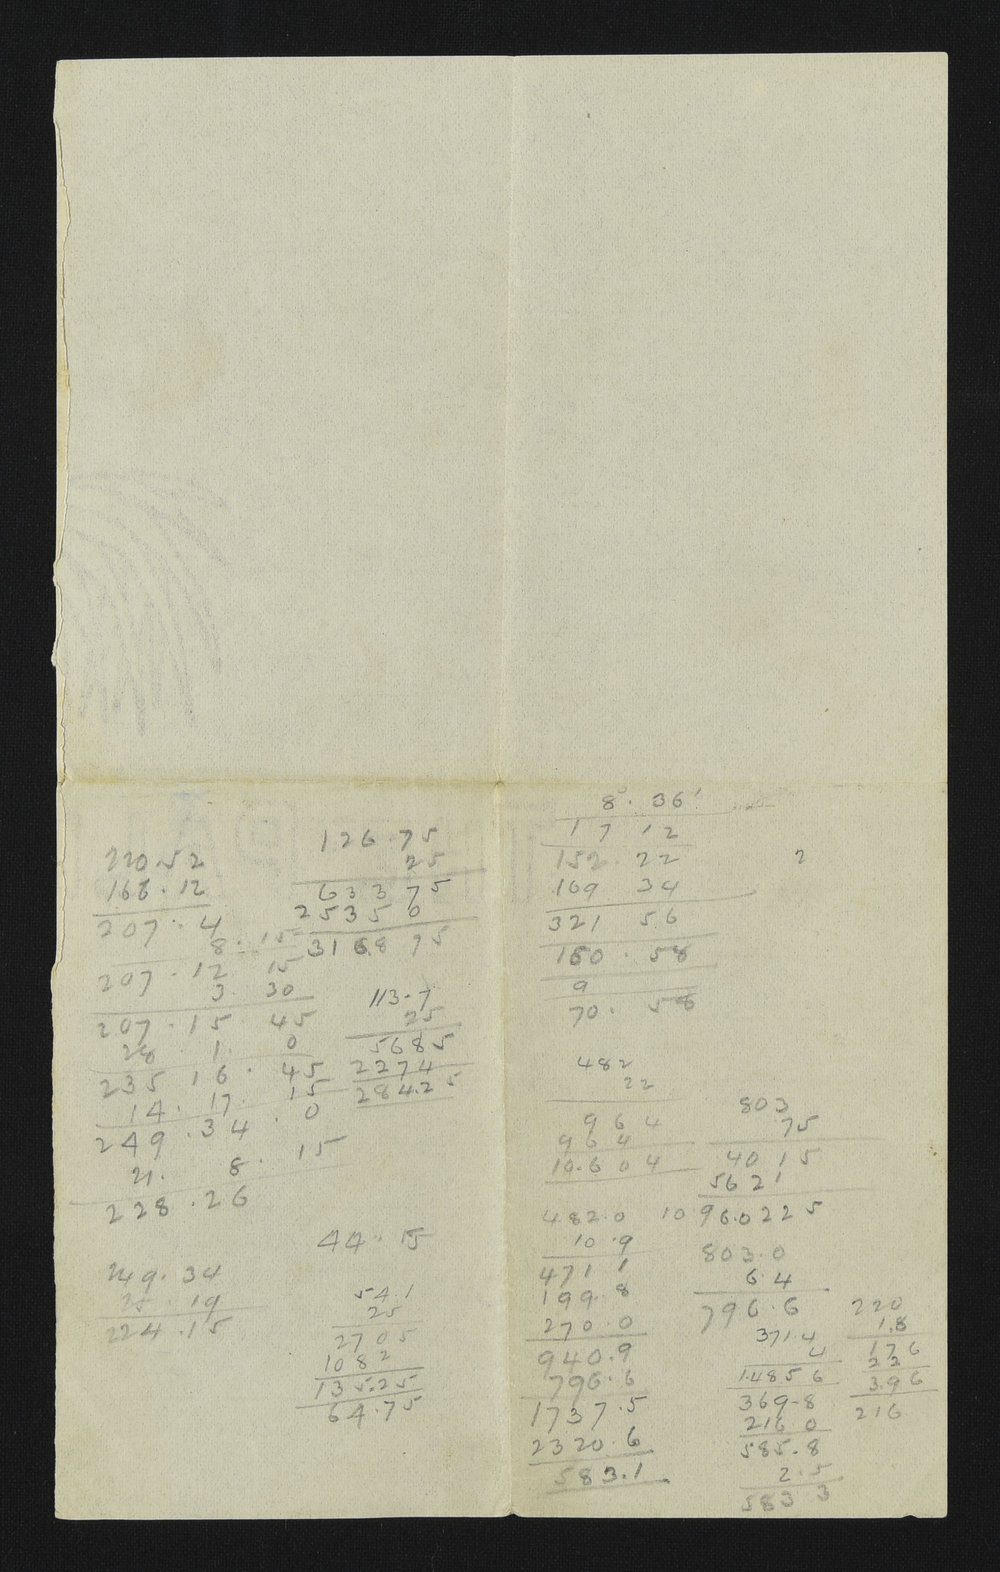 220.52
168.12
207.4
8.15
207.12 15
3 30
207.15 45
28 1. 0
235 16. 45
14. 17. 15
249.34.0
21. 8. 15
228.26
249.34
25.19
224.15
126.75
25
63375
25350
3168 75
113.7
25
5685
2274
2842 5
44.15
54.1
25
2705
1082
135.25
64.75
8°. 36'
17 12
152. 22
169 34
321 56
160. 58
9
70. 58
2
482
22
964
964
10.604
482.0
10.9
471 1
199.8
270.0
940.9
796.6
1737.5
2320.6
583.1
803
75
4015
5621
10 96.0225
803.0
6.4
796.6
371.4
4
1.4856
369.8
216 0
585.8
2.5
583 3
220
1.8
176
22
3.96
216